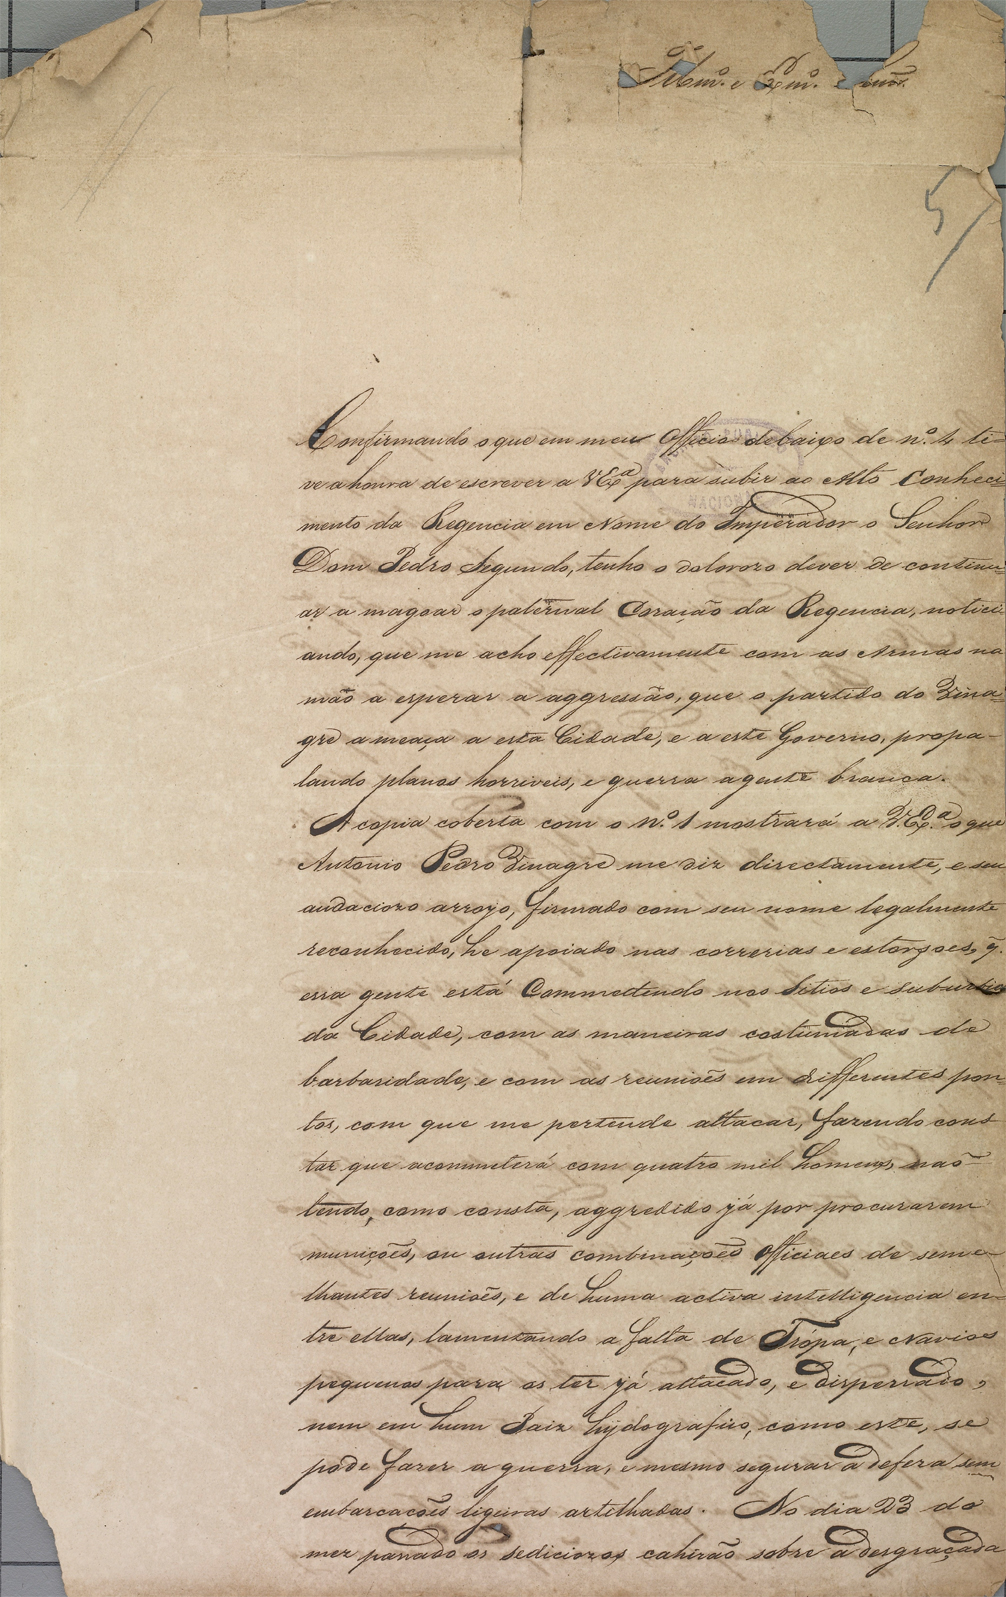 Illm.º e Exm.º Snr.
5
Confirmando o que em meu Officio debaixo de n.º 4 ti-
ve a honra de escrever a V Ex.ª para subir ao Alto Conheci-
mento da Regencia em Nome do Imperador o Senhor
Dom Pedro Segundo, tenho o doloroso dever de continu-
ar a magoar o paternal Coração da Regencia, notici-
ando, que me acho effectivamente com as Armas na
mão a esperar a aggressão, que o partido do Vina-
gre ameaça a esta Cidade, e a este Governo, propa-
lando planos horriveis, e guerra a gente branca.
A copia coberta com o N.º 1 mostrará a V. Ex.ª o que
Antonio Pedro Vinagre me diz directamente, e seu
audacioso arrojo, firmado com seu nome legalmente
reconhecido, he apoiado nas correrias e estorsoes, q̃.
essa gente está Commettendo nos Sitios e suburbios
da Cidade, com as maneiras costumadas de
barbaridade, e com as reuniões em differentes pon-
tos, com que me pertende attacar, fazendo cons
tar que acommeterá com quatro mil homens, não
tendo, como consta, aggredido já por procurarem
munições, ou outras combinações Officiaes de seme-
lhantes reuniões, e de huma activa intelligencia en-
tre ellas, lamentando a falta de Trópa, e Navios
pequenos para os ter já attacado, e dispersado,
nem em hum Paiz hydografico, como este, se
póde fazer a guerra, e mesmo segurar a defesa sem
embarcações ligeiras artilhadas. No dia 23 do
mez passado os sediciozos cahirão sobre a desgraçada